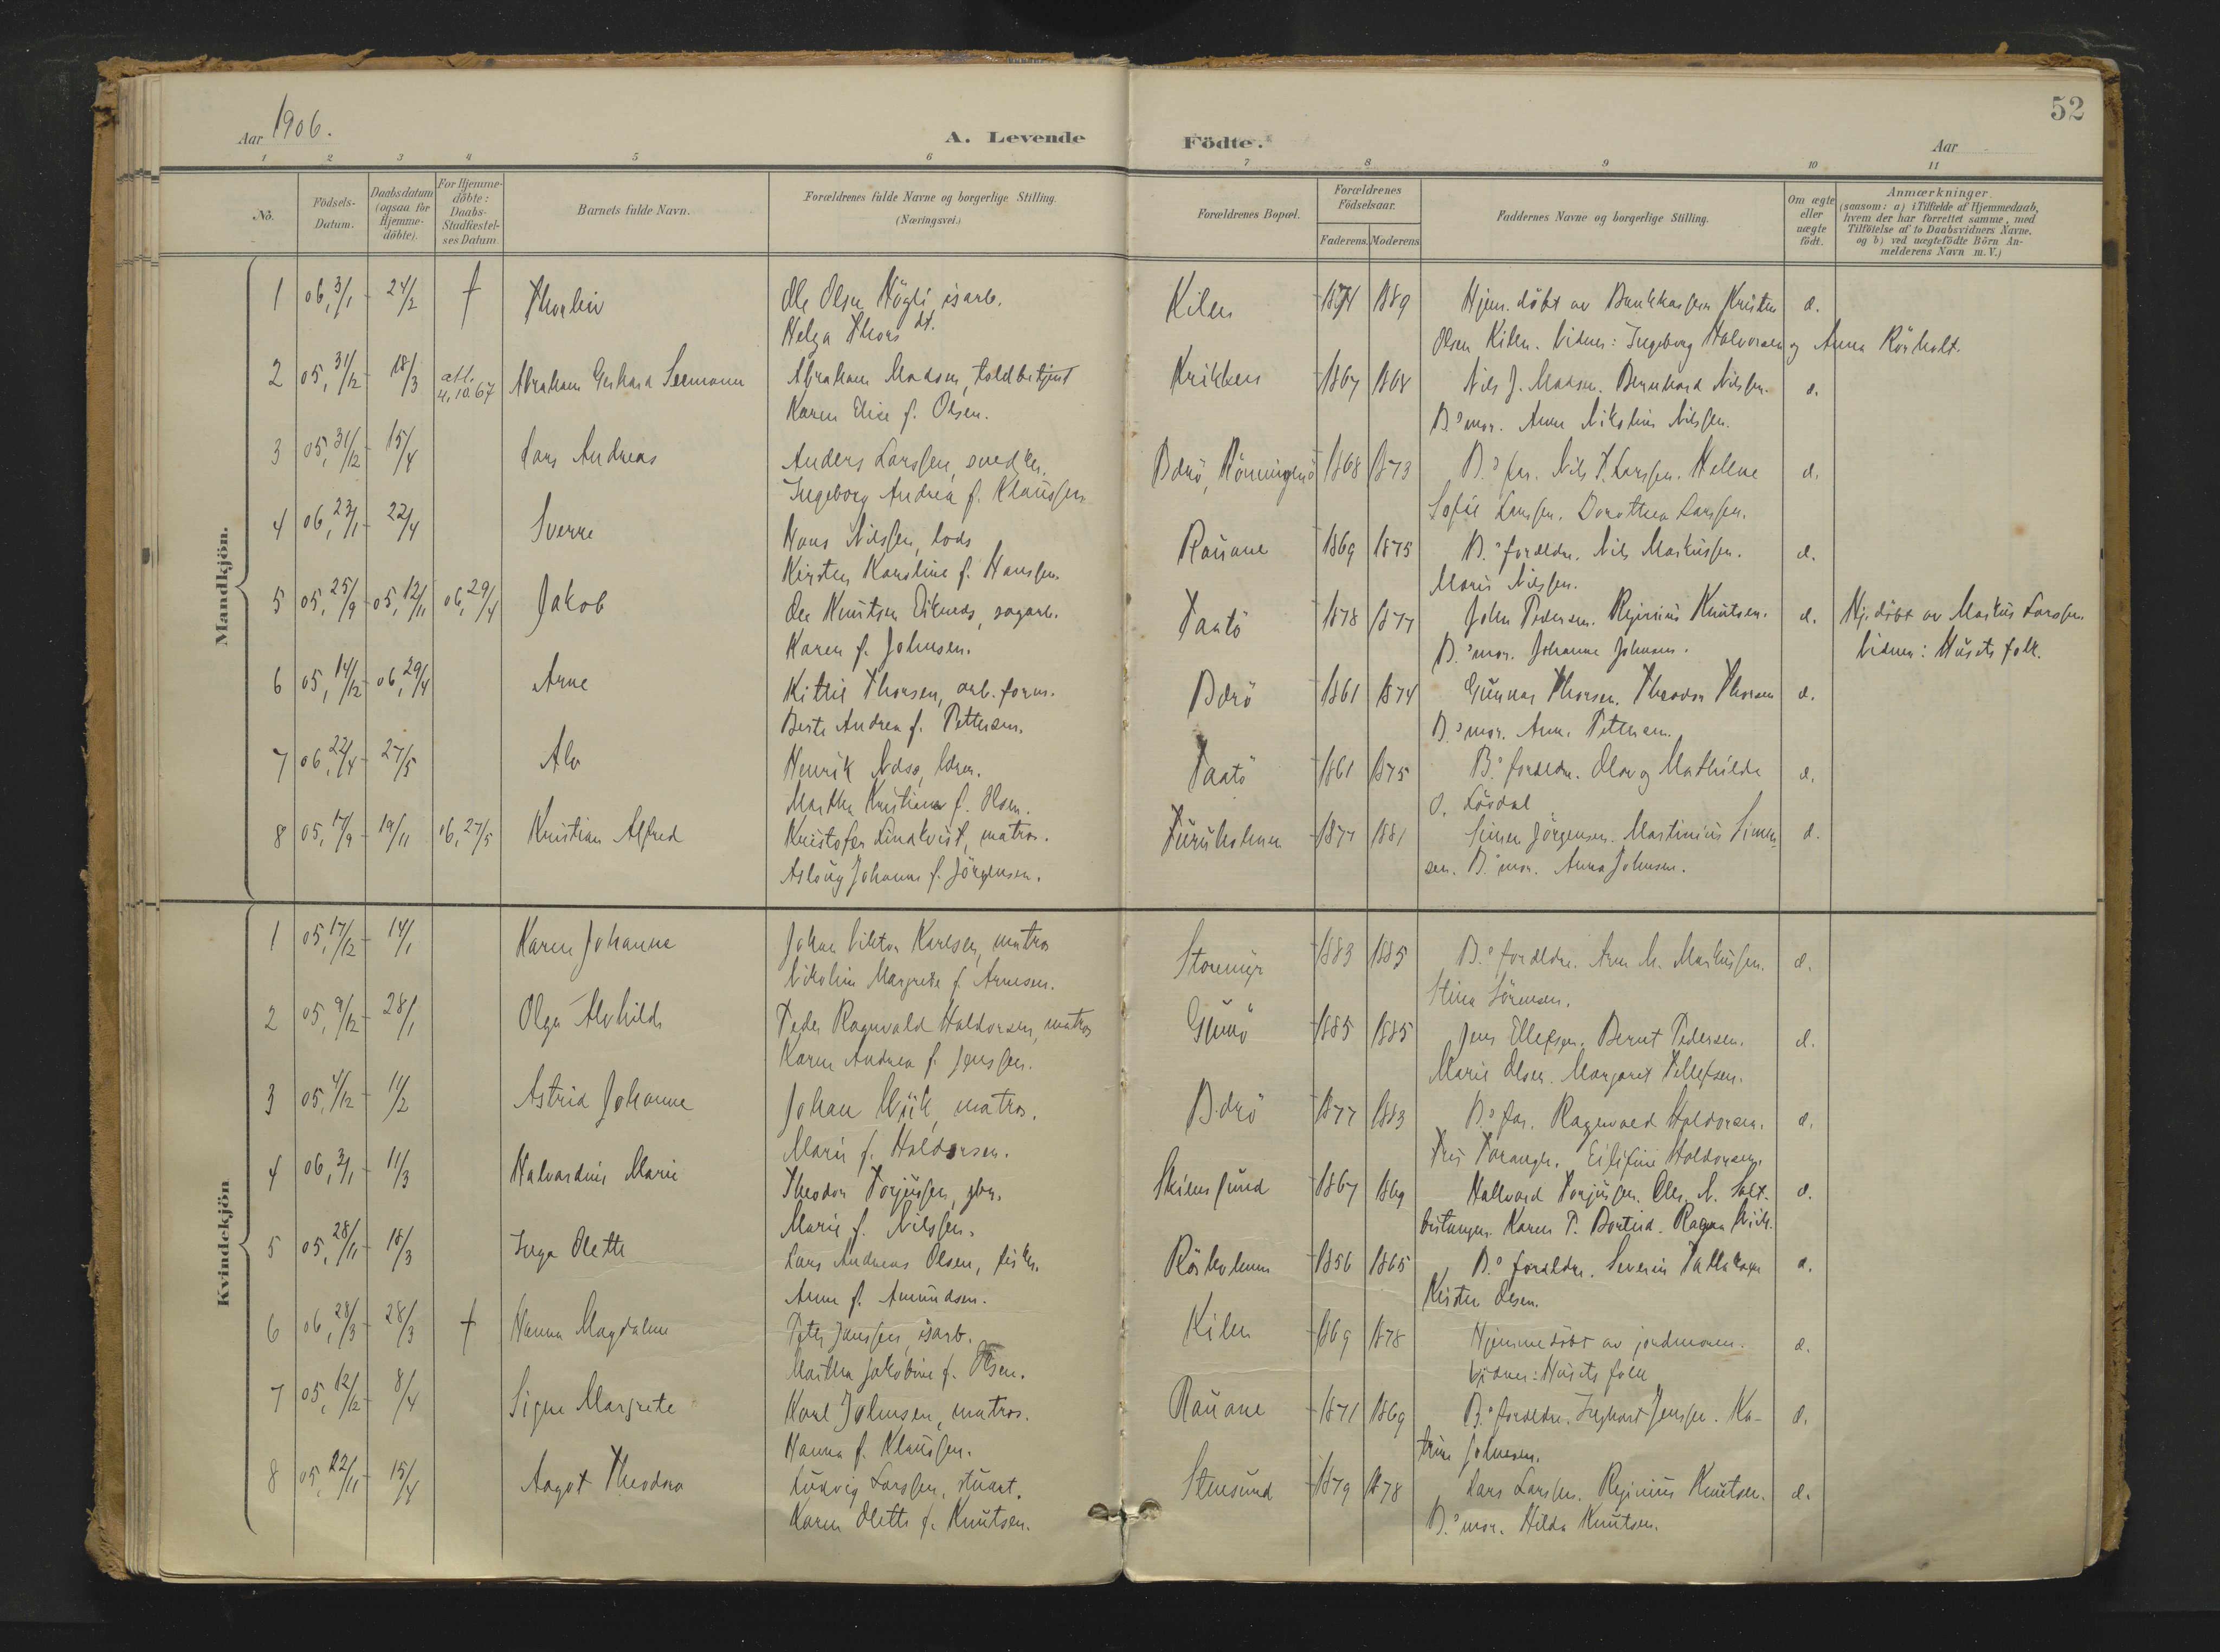 52
Aar 1906.
A. Levende Födte.
Aar
1 2 3 4 5 6 7 8 9 10 11
No.
Födsels-Datum.
Daabsdatum (ogsaa for Hjemme-döbte).
For Hjemme-döbte: Daabs-Stadfæstel-ses Datum
Barnets fulde Navn.
Forældrenes fulde Navne og borgerlige Stilling. (Næringsvei.)
Forældrenes Bopæl.
Forældrenes Födselsaar.
Faderens. Moderens
Faddernes Navne og borgerlige Stilling.
Om ægte eller uægte födt.
Anmærkninger. (saasom: a) i Tilfælde af Hjemmedaab, hvem der har forrettet samme, med Tilföielse af to Daabsvidners Navne. og b) ved uægtefödte Börn An-melderens Navn m. V.)
Mandkjön.
1 06, 3/1 - 24/2 † Thorleiv Ole Olsen Högli, isarb. Kilen 1871 1889 Hjem. döbt av Kristen
Helga Thors dt. Olsen Kilen. Vidner: Ingeborg Halvorsen og Anna Rörholt.
2 05, 31/12 - 18/3 att. 4,10.67 Abraham Gerhard Seemann Abraham Madsen, toldbetjent Krikken 1867 1868 Nils J. Madsen. Bernhard Nilssen.
Karen Elise f. Olsen. B.s mor. Anne Nikoline Nilssen.
3 05, 31/12 - 15/4 Lars Andreas Anders Larssen, snedker. Bærö, 1868 1873 B.s far. Nils T. Larssen. Hellene
Ingeborg Andrea f. Klaussen Sofie Larssen. Dorothea Larssen.
4 06, 23/1 - 22/4 Sverre Hans Nilssen, lods Rauane 1869 1875 B.s forældre. Nils Markussen.
Kirsten Karoline f. Hanssen. Maria Nilssen.
5 05, 25/9 - 05, 12/11 06, 29/4 Jakob Ole Knutsen, sagarb. Taatö 1878 1877 John Pedersen. Reginius Knutsen. Hj. döbt av Markus Larssen
Karen f. Johnsen. B.s mor. Johanne Johnsen. Vidner: Husets folk.
6 05, 14/12 - 06, 29/4 Arne Kittil Thorsen, arb. form. Bærö 1861 1874 Gunnar Thorsen. Theodor Thorsen
Berte Andrea f. Pettersen. B.s mor. Anna Pettersen.
7 06, 22/4 - 27/5 Alv Henrik Næss, lærer. Taatö 1861 1875 B.s forældre. Olav og Mathilde
Martha Kristiane f. Olsen. O. Lövdal
8 05, 17/9 - 19/11 06, 27/5 Kristian Alfred Kristofer Lindkvist, matros. Furuholmen 1877 1881 Simen Jörgensen. Martinius Simen-
Aslaug Johanne f. Jörgensen. sen. B.s mor. Anna Johnsen.
Kvindekjön
1 05, 17/12 - 14/1 Karen Johanne Johan Viktor Karlsen, matros Storemyr 1883 1885 B.s forældre. Ane M. Markussen.
Nikoline Margrete f. Arnesen. Stina Sörensen.
2 05, 9/12 - 28/1 Olga Alvhilde Peder Ragnvald Haldorsen, matros Gjunö 1885 1885 Jens Ellefsen. Bernt Pedersen.
Karen Andrea f. Jenssen. Marie Olsen. Margaret Tellefsen.
3 05, 4/12 - 11/2 Astrid Johanne Johan Wiik, matros. Bærö 1877 1883 B.s far. Ragnvald Haldorsen.
Marie f. Haldorsen. Haldorsen.
4 06, 3/1 - 11/3 Halvardine Marie Theodor Torjussen, gbr. Skilnsund 1867 1869 Hallvard Torjussen.
Marie f. Nilssen. Karen P.
5 05, 28/11 - 18/3 Inga Olette Lars Andreas Olsen, fisker. Rösholmen 1856 1865 B.s forældre. Severin
Anne f. Amundsen. Kirsten Olsen.
6 06, 28/3 - 28/3 † Hanna Magdalene Peter Janssen, isarb. Kilen 1869 1878 Hjemmedöbt av jordmoren.
Martha Jakobine f. Olsen. Vidner: Husets folk
7 05, 12/12 - 8/4 Signe Margrete Karl Johnsen, matros. Rauane 1871 1869 B.s forældre. Inghart Jenssen. Ka-
Hanna f. Klaussen. trine Johnsen.
8 05, 22/11 - 15/4 Aagot Theodora Ludvig Larssen, stuart. Stensund 1879 1878 Lars Larssen. Reginius Knutsen.
Karen Olette f. Knutsen. B.s mor. Hilda Knutsen.